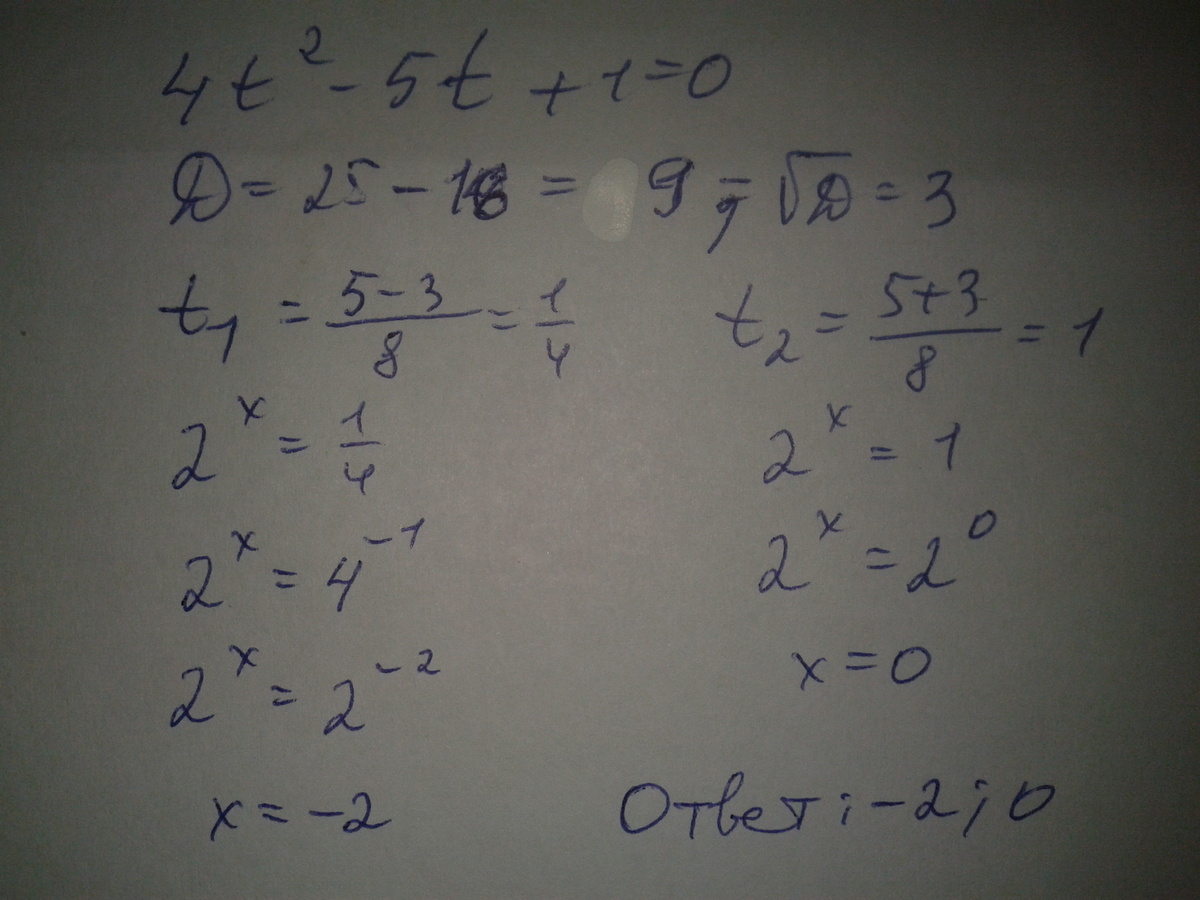 4t² - 5t + 1 = 0
D = 25 - 16 = 9; √D = 3
t₁ = (5-3)/8 = 1/4    t₂ = (5+3)/8 = 1
2ˣ = 1/4    2ˣ = 1
2ˣ = 4⁻¹    2ˣ = 2⁰
2ˣ = 2⁻²    x = 0
x = -2    Ответ: -2; 0